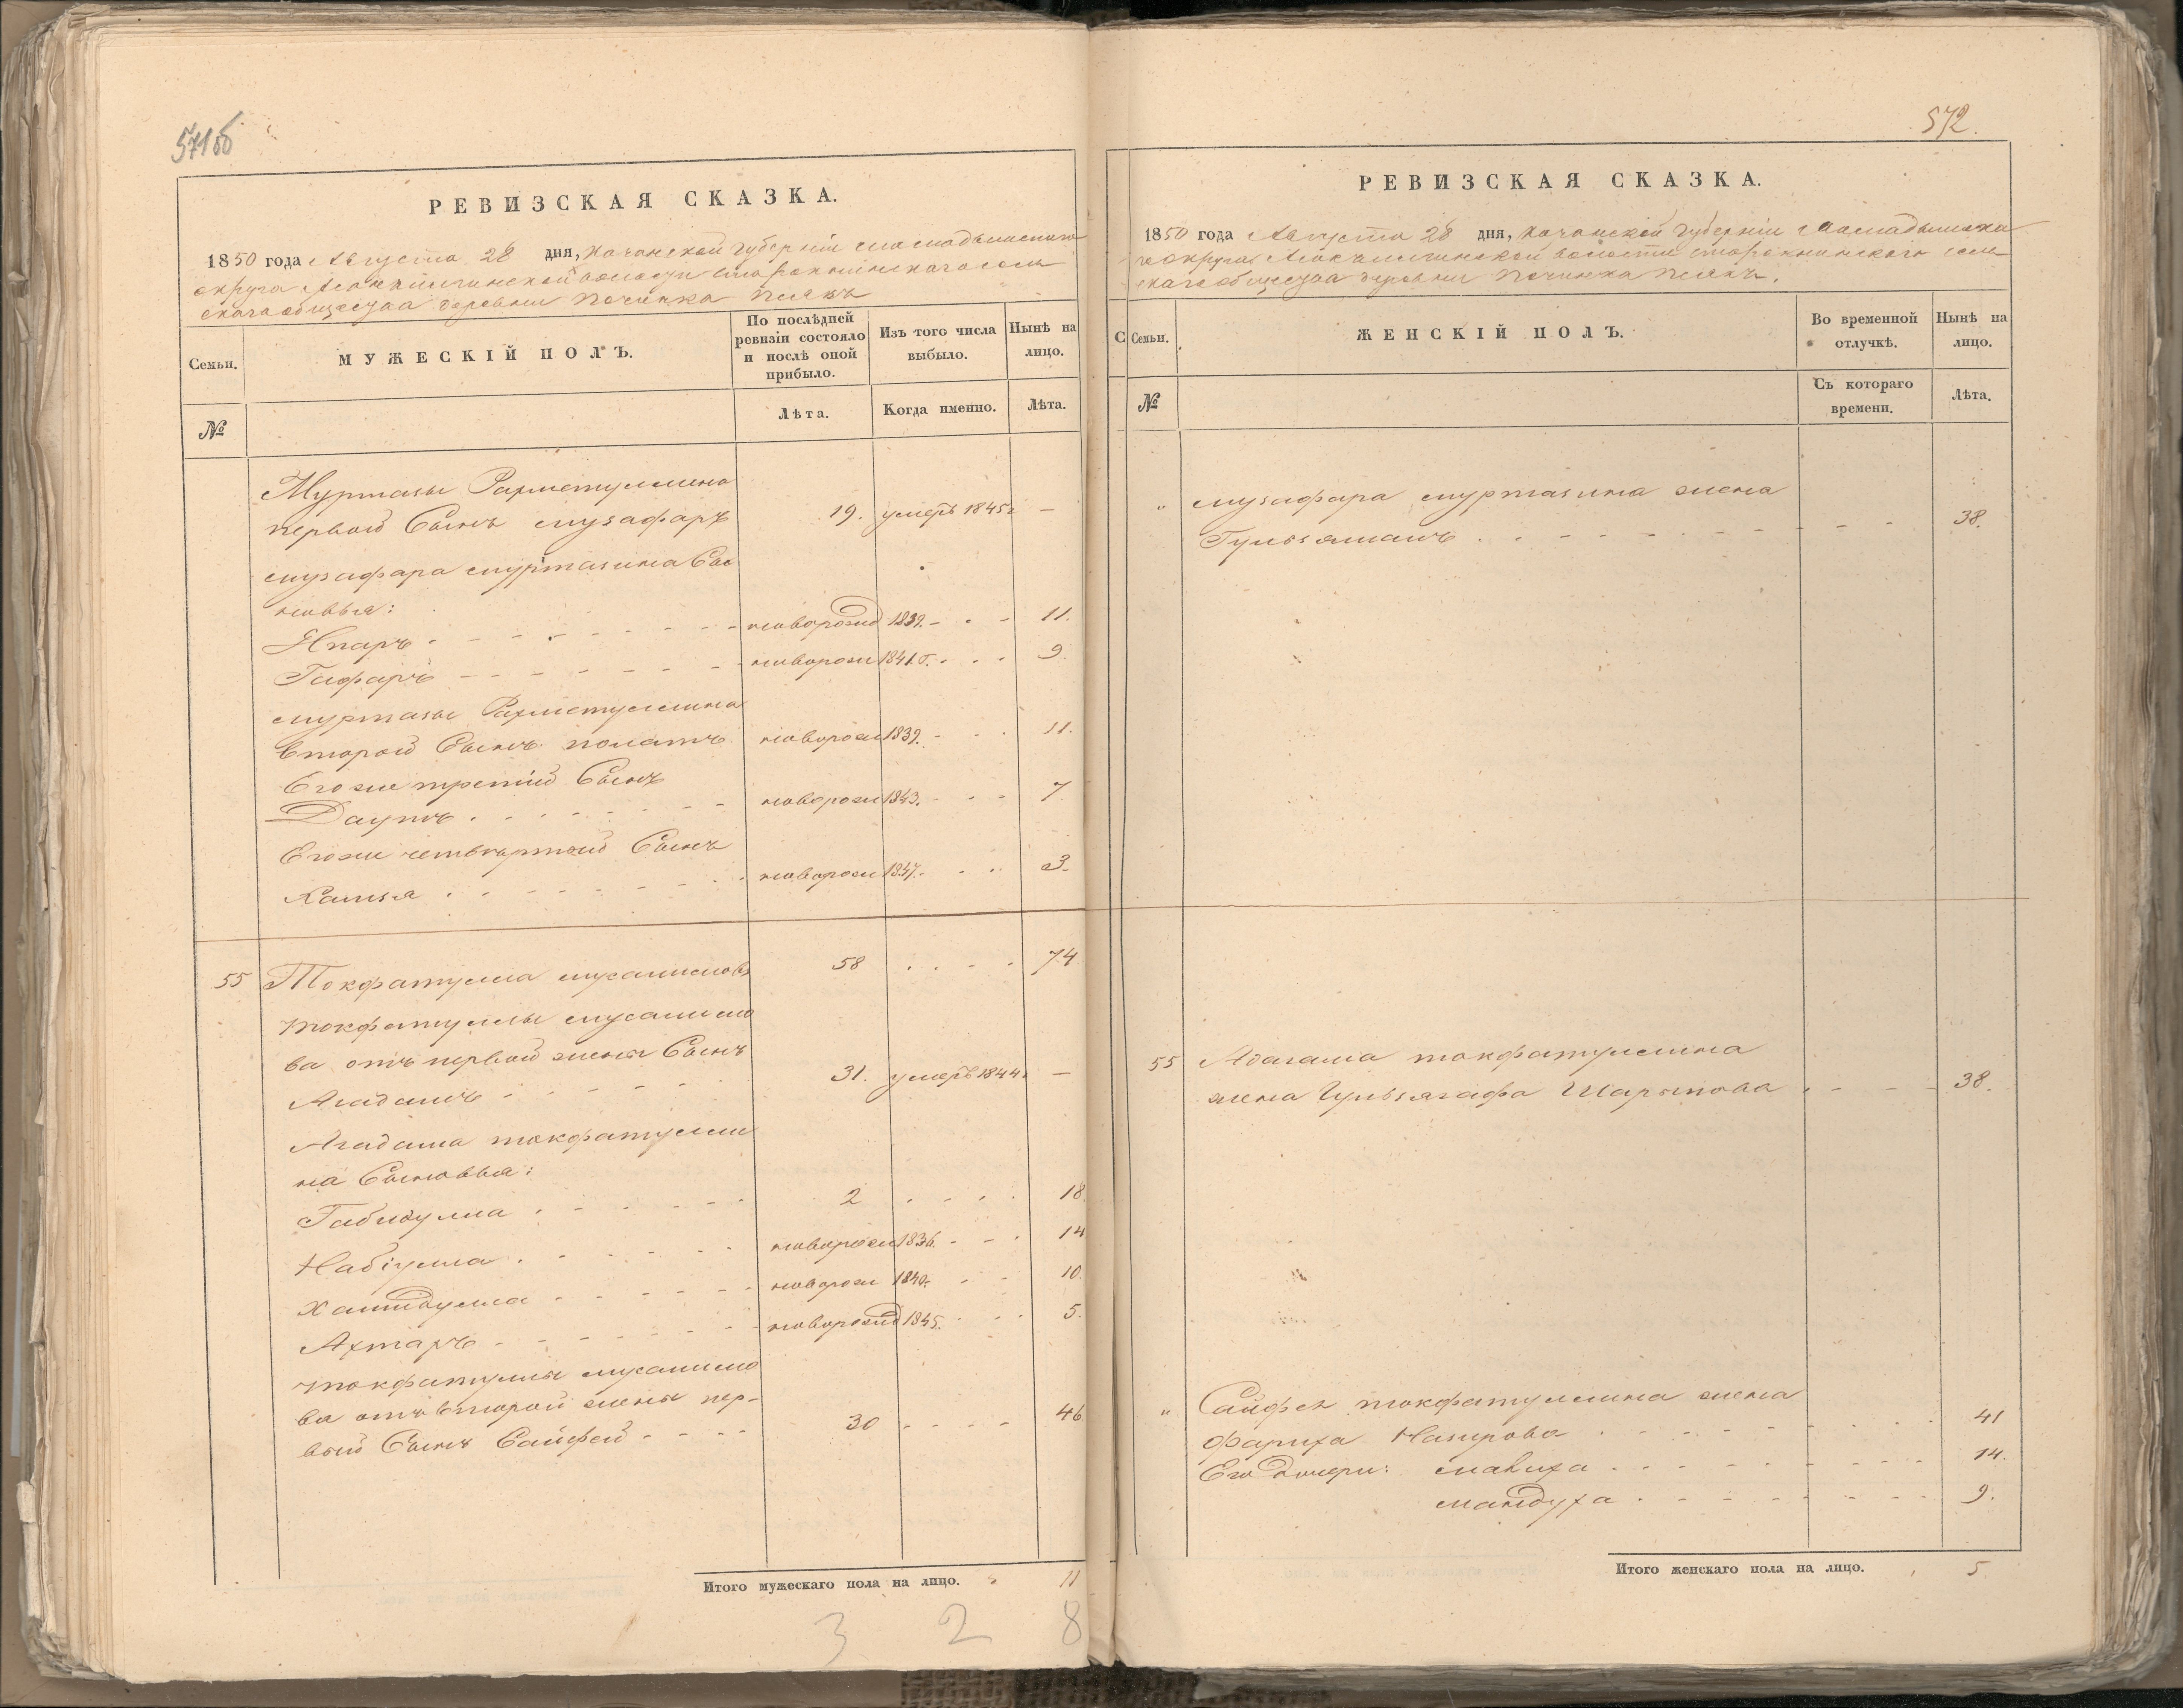 571об
РЕВИЗСКАЯ СКАЗКА.
1850 года Августа 28 дня, Казанской Губерніи Мамадышскаго
округа волости Старокнинскаго сель
скаго общества деревни Починка
Семьи.
МУЖЕСКІЙ ПОЛЪ.
По послѣдней ревизіи состояло и послѣ оной прибыло.
Изъ того числа выбыло.
Нынѣ на лицо.
№
Лѣта.
Когда именно.
Лѣта.
Муртазы Рахметуллина
первой Сынъ Музафаръ 19. умеръ 1845г —
Музафара Муртазина Сы
новья:
новорожд 1839. 11.
Гафаръ новорож 1841.г. 9.
Муртазы Рахметуллина
второй Сынъ Полатъ новорож 1839. 11.
Егоже третій Сынъ
Даутъ новорож 1843. 7.
Егоже четвертый Сынъ
Хамзя новорож 1847. 3.
55 Токфатулла Мусалимовъ 58 74
Токфатуллы Мусалимо
ва отъ первой жены Сынъ
Агадамъ 31. умеръ 1844г —
Агадама Токфатулли
на Сыновья:
Габидулла 2 18.
Набіулла новорож 1836. 14
Хамидулла новорож 1840. 10.
Ахтаръ новорожд 1845. 5.
Токфатуллы Мусалимо
ва отъ второй жены пер-
вый Сынъ Сайфей 30 46
Итого мужескаго пола на лицо. 11
3 2 8
572.
РЕВИЗСКАЯ СКАЗКА.
1850 года Августа 28 дня, Казанской Губерніи Мамадышска
го округа волости Старокнинскаго сель
скаго общества деревни Починка
С
Семьи.
ЖЕНСКІЙ ПОЛЪ.
Во временной отлучкѣ.
Нынѣ на лицо.
№
Съ котораго времени.
Лѣта.
" Музафара Муртазина жена
Гульзямалъ 38.
55 Агагама Токфатуллина
жена Гульзягафа Шарыпова 38.
" Сайфея Токфатуллина жена
Фариха Назирова 41
Его дочери: Малиха 14.
Мамдуха 9.
Итого женскаго пола на лицо. 5